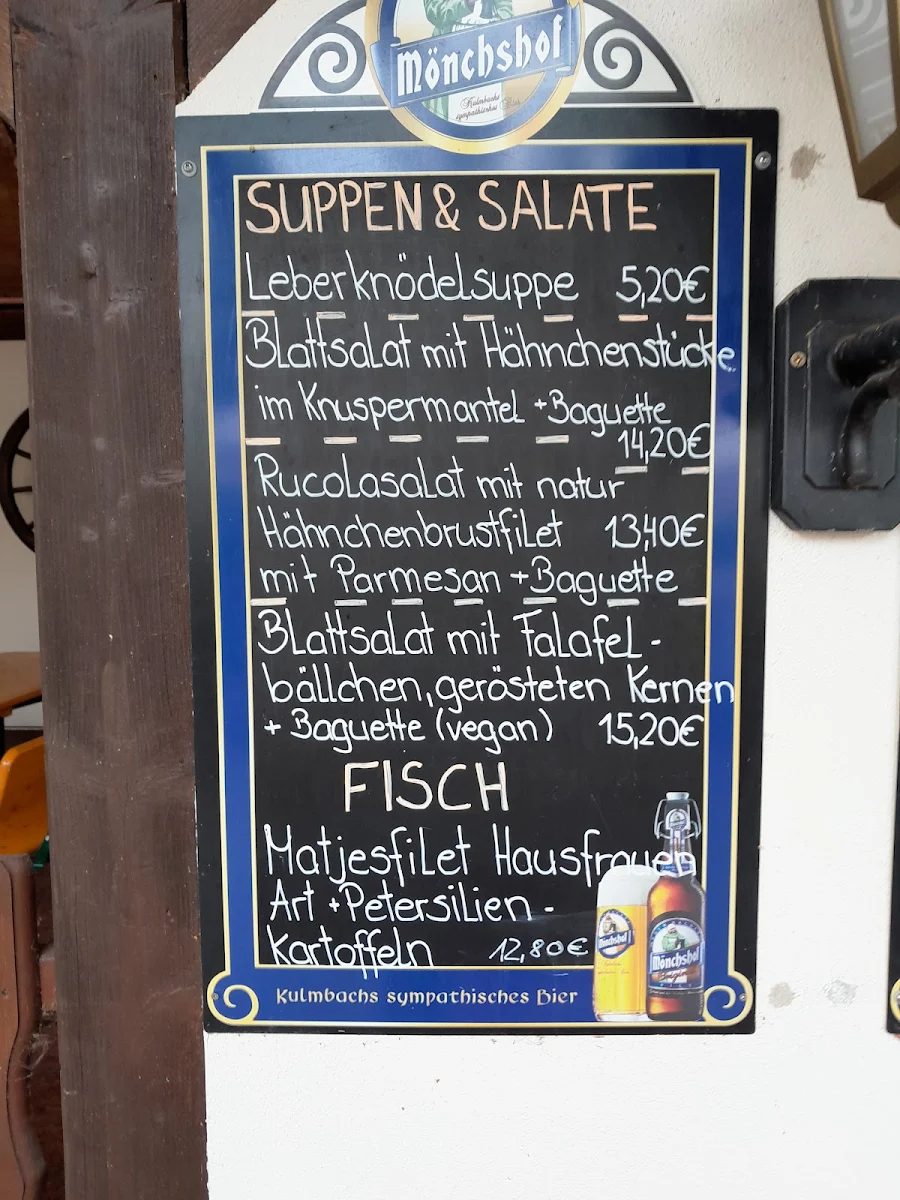 Mönchshof
Kulmbachs
sympathisches Bier
SUPPEN & SALATE
Leberknödelsuppe 5,20€
Blattsalat mit Hähnchenstücke
im Knuspermantel + Baguette
14,20€
Rucolasalat mit natur
Hähnchenbrustfilet 13,40€
mit Parmesan + Baguette
Blattsalat mit Falafel-
bällchen, gerösteten Kernen
+ Baguette (vegan) 15,20€
FISCH
Matjesfilet Hausfrauen
Art + Petersilien-
kartoffeln 12,80€
Mönchshof
Mönchshof
Original
Kulmbachs sympathisches Bier